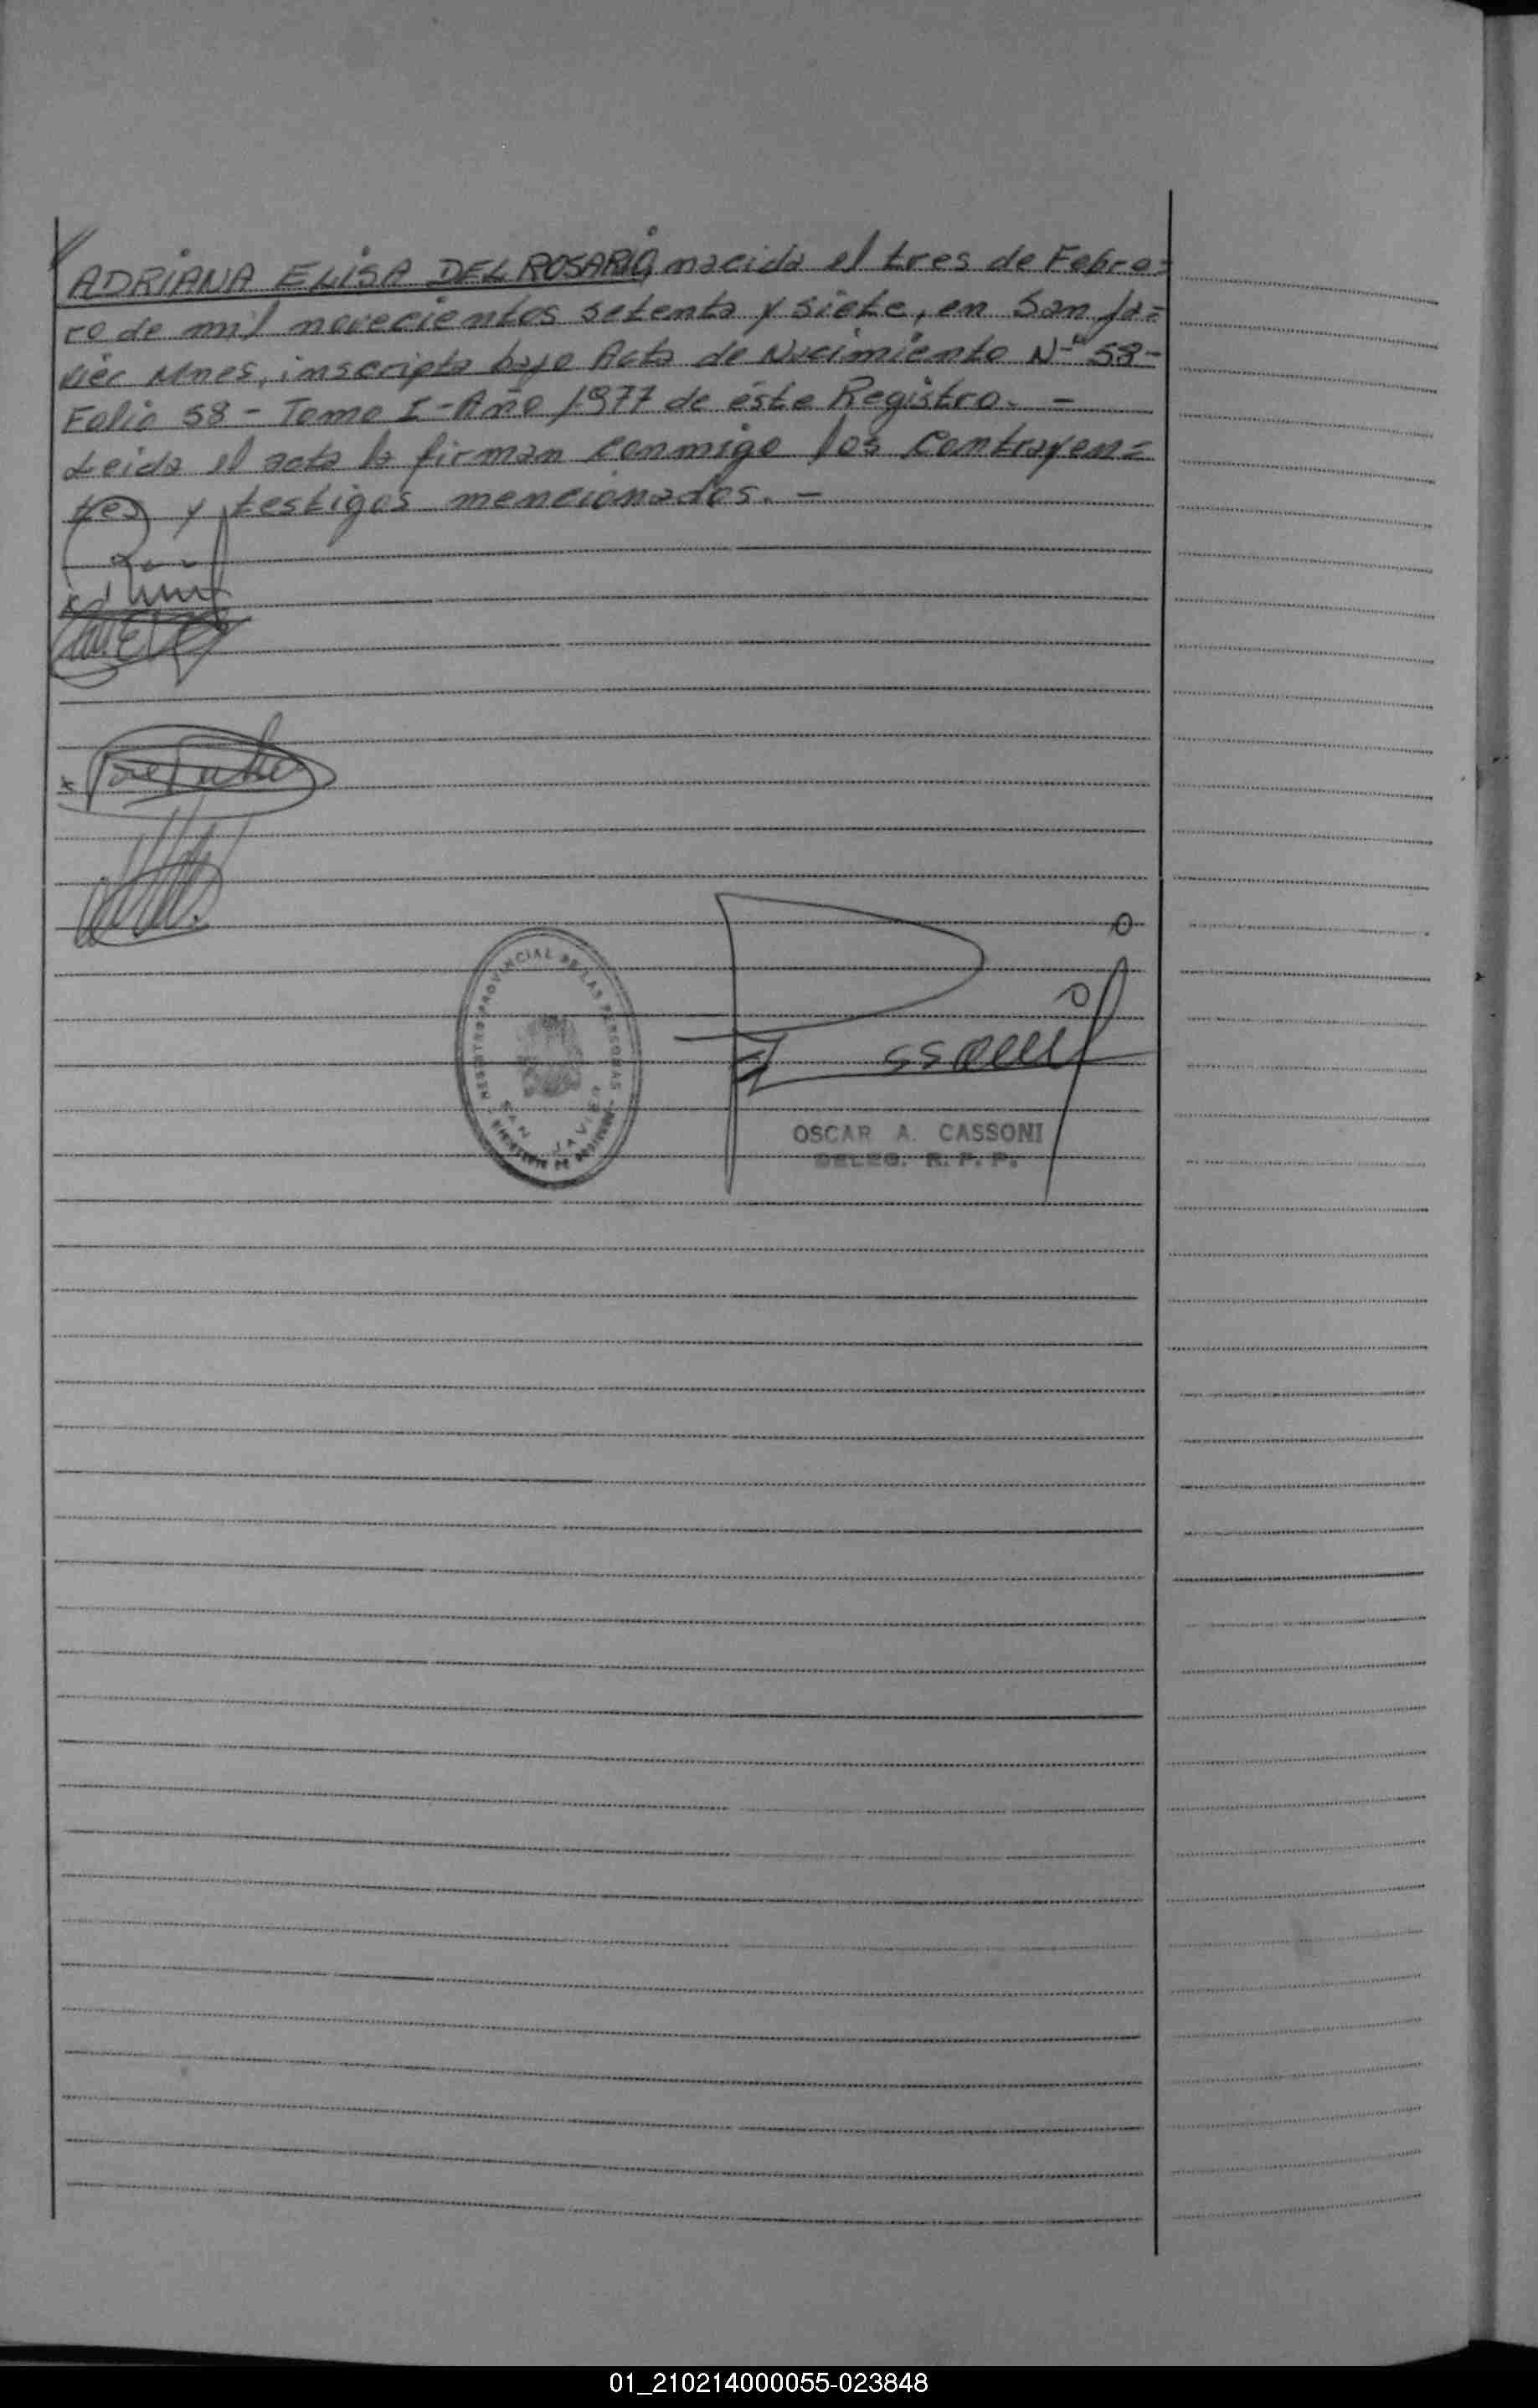 ADRIANA ELISA DEL ROSARIO, nacida el tres de Febre=
ro de mil novecientos setenta y siete, en San Ja=
vier Mnes, inscripta bajo Acta de Nacimiento Nº 58-
Folio 58 - Tomo I - Año 1977 de éste Registro. -
Leida el acta la firman conmigo los Contrayen=
tes y testigos mencionados. -
REGISTRO PROVINCIAL DE LAS PERSONAS
SAN JAVIER
OSCAR A. CASSONI
DELEG. R. P. P.
01_210214000055-023848